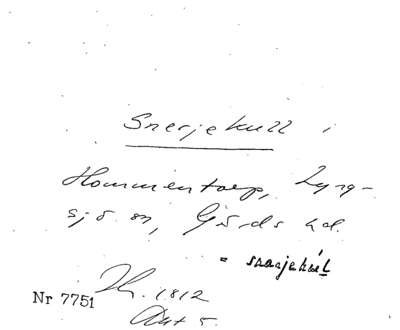 Snerjekull i
Hommentorp, Lyng-
sjö sn, Gärds hd.
= snarjekúl
Nr 7751 1812
Akt 5.